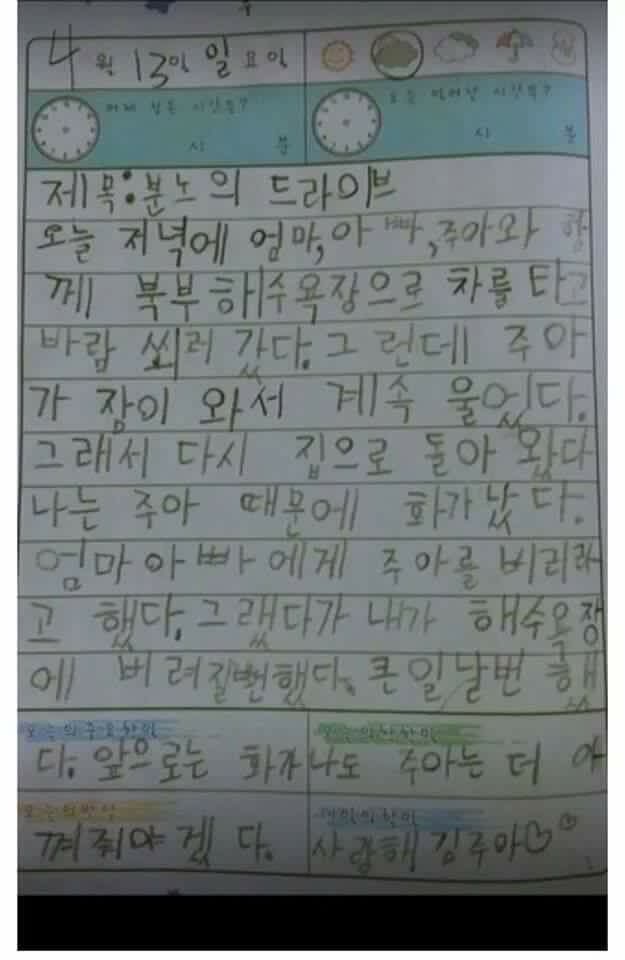 4월 13일 일요일
어제 잠든 시간은?
오늘 일어난 시간은?
시 분
시 분
제목:분노의 드라이브
오늘 저녁에 엄마,아빠,주아와 함
께 북부해수욕장으로 차를 타고
바람 쐬러 갔다.그런데 주아
가 잠이 와서 계속 울었다.
그래서 다시 집으로 돌아왔다
나는 주아 때문에 화가났다.
엄마아빠에게 주아를 버리라
고 했다.그랬다가 내가 해수욕장
에 버려질뻔했다.큰일날번 했
오늘의 중요한일
오늘의 착한일
다.앞으로는 화가나도 주아는 더 아
오늘의 반성
내일의 할일
껴줘야겠다. 사랑해 김주아♡♡